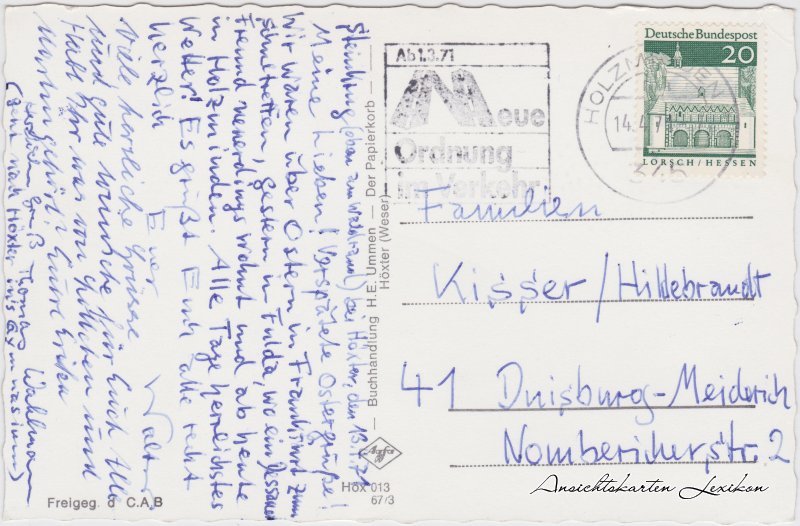 Steinkrug (oben am Waldrand) bei Höxter, den 13.4.71
Meine Lieben! Verspätete Ostergrüße!
Wir waren über Ostern in Frankfurt zum
gestern in Fulda, wo ein Jessauer
Freund neuerdings wohnt und ab heute
in Holzminden. Alle Tage herrlichstes
Wetter! Es grüßt Euch alle recht
herzlich
Euer Walter.
Viele herzliche Grüsse
und gute Wünsche für Euch Alle
Habt Ihr was von Götheren und
Martin gehört? Eure
Thomas Wahlmann
(geht nach Höxter ins Gymnasium)
Freigeg. d C.A.B
Buchhandlung H.E. Ummen — Der Papierkorb —
Höxter (Weser)
Agfa
Höx 013
67/3
Ab 1.3.71
Neue
Ordnung
im Verkehr
HOLZMINDEN
14.4.7
345
Deutsche Bundespost
20
LORSCH/HESSEN
Familien
Kisser/Hildebrandt
41 Duisburg-Meiderich
Nombericherstr. 2
Ansichtskarten Lexikon